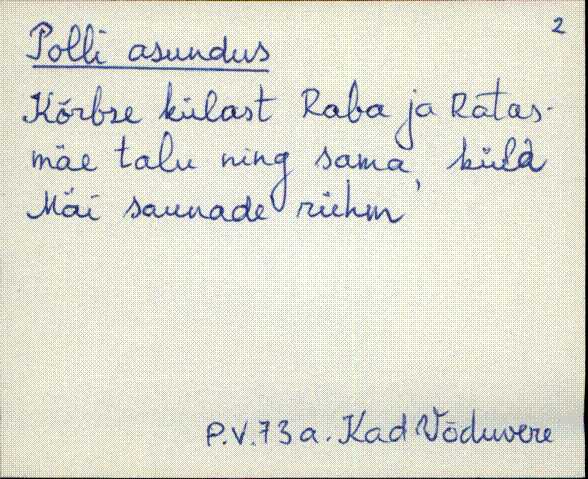 2
Polli asundus
Kõrbse külast Raba ja Ratas-
mäe talu ning sama küla
Mäi saunade rühm
P.V.73a. Kad Võduvere